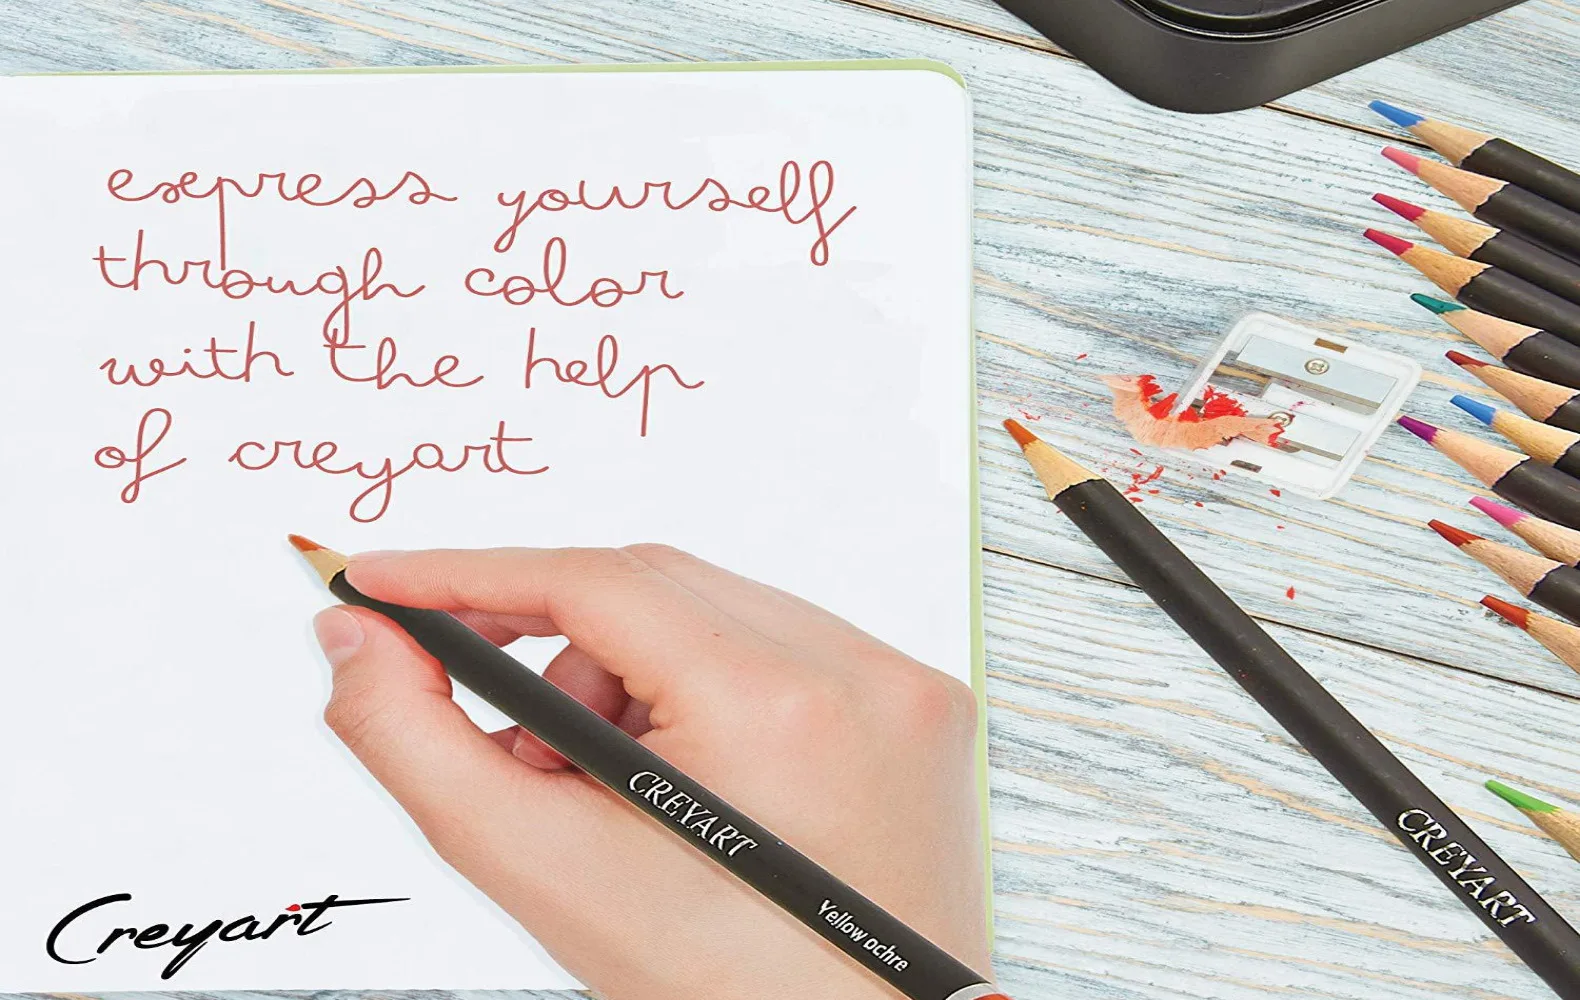 express yourself
through color
with the help
of creyart
CREYART
Yellow ochre
CREYART
Creyart